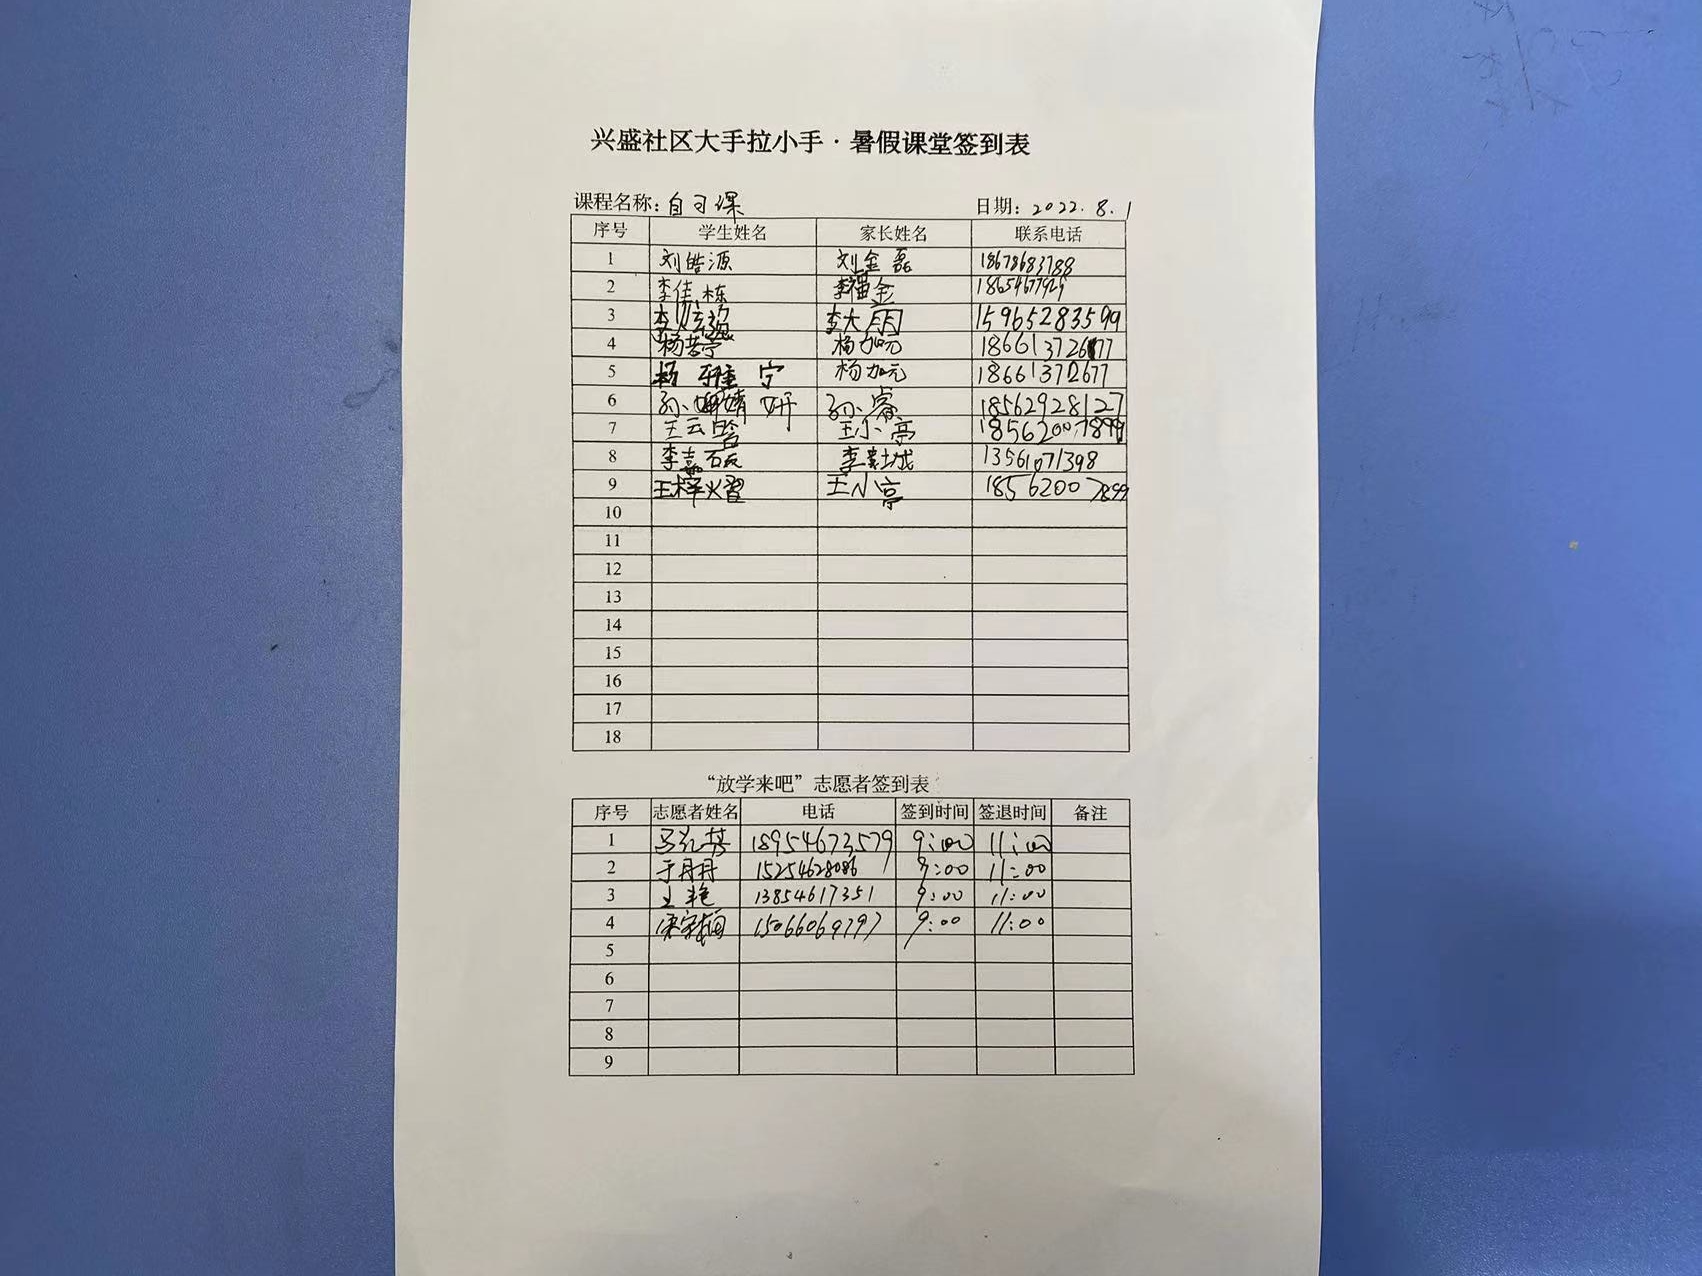 兴盛社区大手拉小手·暑假课堂签到表
课程名称：自习课 日期：2022.8.1
序号 学生姓名 家长姓名 联系电话
1 刘皓源 刘金磊 18678683788
2 李佳栋 李福金
3 李大雨 15965283599
4 杨若宁 杨加元 18661372677
5 杨雅宁 杨加元 18661372677
6 孙婧妍 孙睿 18562928127
7 王云晗 王小亭 18562007899
8 李嘉硕 李 城 13561071398
9 王梓熠 王小亭 18562007899
10
11
12
13
14
15
16
17
18
“放学来吧”志愿者签到表
序号 志愿者姓名 电话 签到时间 签退时间 备注
1 18954673579 9:00 11:00
2 于丹丹 15254628086 9:00 11:00
3 王艳 13854617351 9:00 11:00
4 15066069797 9:00 11:00
5
6
7
8
9